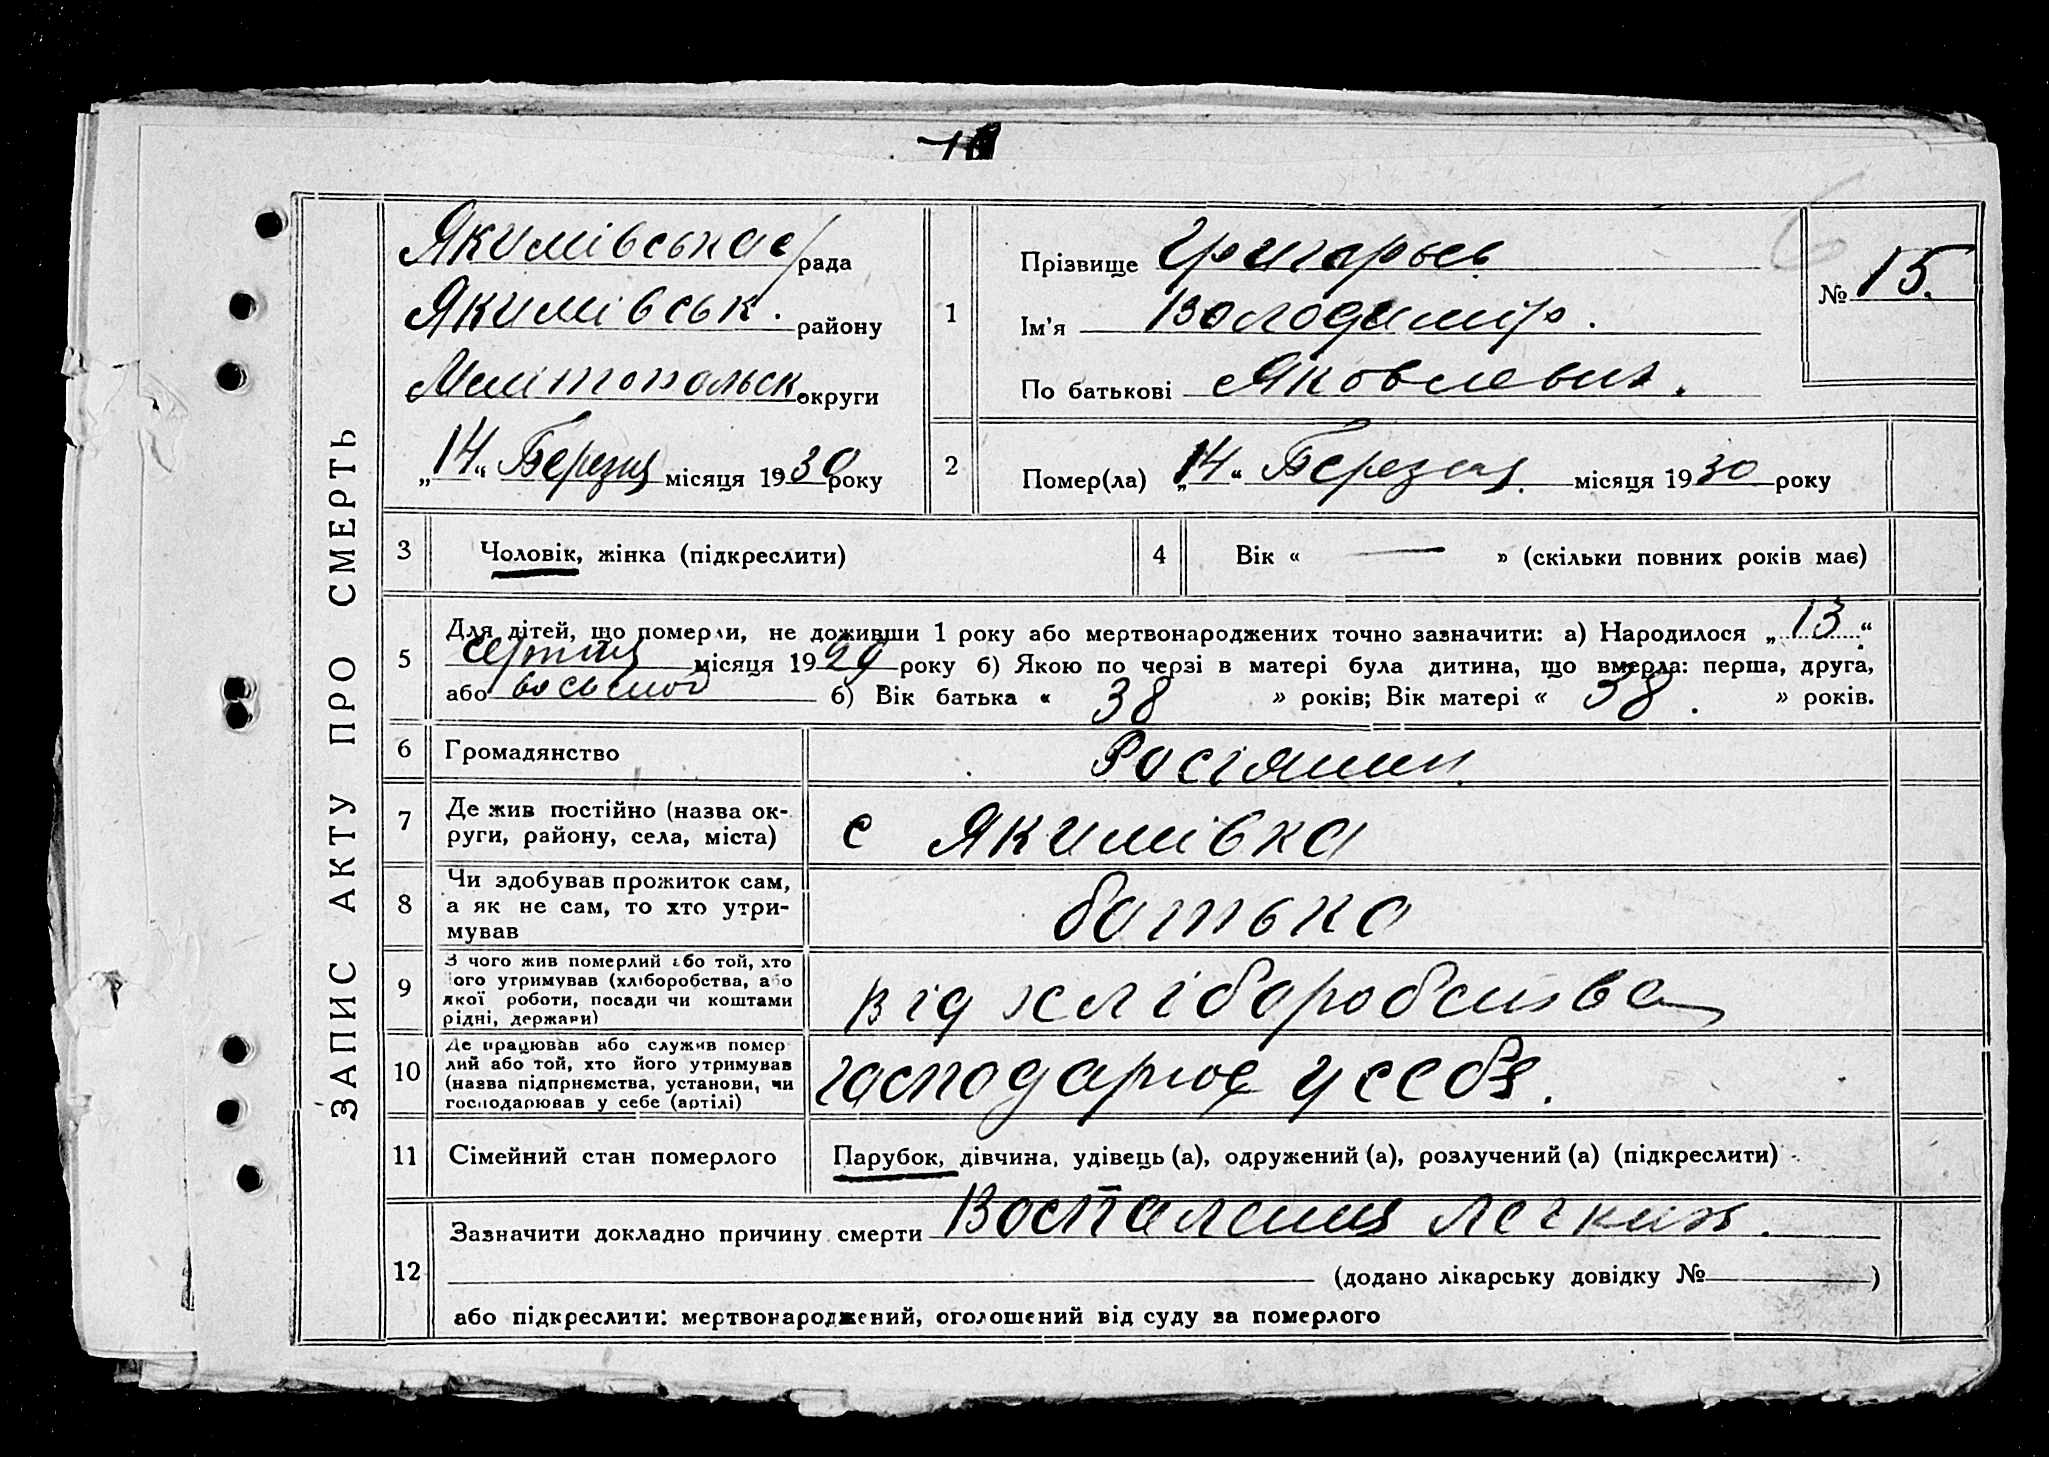 ЗАПИС АКТУ ПРО СМЕРТЬ
Якимівська с/рада
Якимівськ. району
Мелітопольск округи
„14“ Березня місяця 1930 року
1
Прізвище Григорьев
Ім'я Володимир.
По батькові Яковлевич.
№ 15.
6
2
Помер(ла) „14“ Березня місяця 1930 року
3 Чоловік, жінка (підкреслити)
4 Вік « — » (скільки повних років має)
5
Для дітей, що померли, не доживши 1 року або мертвонароджених точно зазначити: а) Народилося „13“
серпня місяця 1929 року б) Якою по черзі в матері була дитина, що вмерла: перша, друга,
або восьмой б) Вік батька « 38 » років; Вік матері « 38. » років.
6 Громадянство Росіянин
7
Де жив постійно (назва ок-
руги, району, села, міста)
с Якимівка
8
Чи здобував прожиток сам,
а як не сам, то хто утри-
мував
батько
9
З чого жив померлий або той, хто
його утримував (хліборобства, або
якої роботи, посади чи коштами
рідні, держави)
від хліборобства
10
Де працював або служив помер
лий або той, хто його утримував
(назва підприємства, установи, чи
господарював у себе (артілі)
господарює у себя.
11 Сімейний стан померлого Парубок, дівчина, удівець (а), одружений (а), розлучений (а) (підкреслити)
12
Зазначити докладно причину смерти Воспаления легких.
(додано лікарську довідку № )
або підкреслити: мертвонароджений, оголошений від суду за померлого